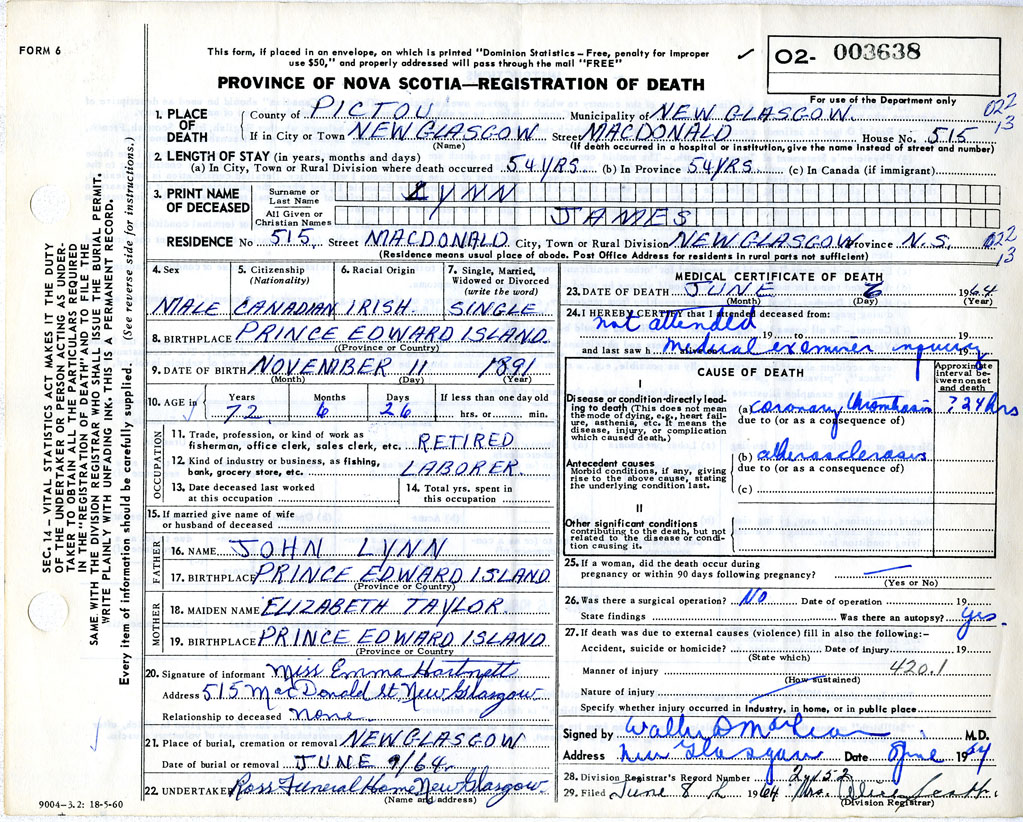 FORM 6
This form, if placed in an envelope, on which is printed "Dominion Statistics – Free, penalty for improper
use $50," and properly addressed will pass through the mail "FREE"
✓
O2- 003638
For use of the Department only
PROVINCE OF NOVA SCOTIA—REGISTRATION OF DEATH
022
13
1. PLACE OF DEATH
County of PICTOU Municipality of NEW GLASGOW
If in City or Town NEW GLASGOW Street MACDONALD House No. 515
(Name) (If death occurred in a hospital or institution, give the name instead of street and number)
2. LENGTH OF STAY (in years, months and days)
(a) In City, Town or Rural Division where death occurred 54 YRS (b) In Province 54 YRS (c) In Canada (if immigrant)
3. PRINT NAME OF DECEASED
Surname or Last Name LYNN
All Given or Christian Names JAMES
RESIDENCE No 515 Street MACDONALD City, Town or Rural Division NEW GLASGOW Province N.S.
022
13
(Residence means usual place of abode. Post Office Address for residents in rural parts not sufficient)
4. Sex
MALE
5. Citizenship (Nationality)
CANADIAN
6. Racial Origin
IRISH
7. Single, Married, Widowed or Divorced (write the word)
SINGLE
8. BIRTHPLACE PRINCE EDWARD ISLAND
(Province or Country)
9. DATE OF BIRTH NOVEMBER 11 1891
(Month) (Day) (Year)
10. AGE in Years Months Days If less than one day old
72 6 26 hrs. or min.
OCCUPATION
11. Trade, profession, or kind of work as
fisherman, office clerk, sales clerk, etc. RETIRED
12. Kind of industry or business, as fishing,
bank, grocery store, etc. LABORER
13. Date deceased last worked
at this occupation
14. Total yrs. spent in
this occupation
15. If married give name of wife
or husband of deceased
FATHER
16. NAME JOHN LYNN
17. BIRTHPLACE PRINCE EDWARD ISLAND
(Province or Country)
MOTHER
18. MAIDEN NAME ELIZABETH TAYLOR
19. BIRTHPLACE PRINCE EDWARD ISLAND
(Province or Country)
20. Signature of informant Miss Emma Hartnett
Address 515 MacDonald St. New Glasgow
Relationship to deceased None
21. Place of burial, cremation or removal NEW GLASGOW
Date of burial or removal JUNE 9/64
22. UNDERTAKER Ross Funeral Home New Glasgow
(Name and address)
MEDICAL CERTIFICATE OF DEATH
23. DATE OF DEATH JUNE 6 1964
(Month) (Day) (Year)
24. I HEREBY CERTIFY that I attended deceased from:
not attended 19 19
and last saw h Medical examiner inquiry 19
CAUSE OF DEATH
Approximate interval between onset and death
I
Disease or condition directly leading to death (This does not mean the mode of dying, e.g., heart failure, asthenia, etc. It means the disease, injury, or complication which caused death.)
(a) coronary thrombosis ? 24 hrs
due to (or as a consequence of)
Antecedent causes
Morbid conditions, if any, giving rise to the above cause, stating the underlying condition last.
(b) atherosclerosis
due to (or as a consequence of)
(c)
II
Other significant conditions
contributing to the death, but not related to the disease or condition causing it.
25. If a woman, did the death occur during
pregnancy or within 90 days following pregnancy?
(Yes or No)
26. Was there a surgical operation? No Date of operation 19
State findings Was there an autopsy? yes
27. If death was due to external causes (violence) fill in also the following:–
Accident, suicide or homicide? Date of injury 19
(State which)
Manner of injury 420.1
(How sustained)
Nature of injury
Specify whether injury occurred in industry, in home, or in public place
Signed by M.D.
Address New Glasgow Date 1964
28. Division Registrar's Record Number
29. Filed June 8 1964 Mrs. Scott
(Division Registrar)
SEC. 14 – VITAL STATISTICS ACT MAKES IT THE DUTY
OF THE UNDERTAKER OR PERSON ACTING AS UNDER-
TAKER TO OBTAIN ALL THE PARTICULARS REQUIRED
IN THE "REGISTRATION OF DEATH" AND TO FILE THE
SAME WITH THE DIVISION REGISTRAR WHO SHALL ISSUE THE BURIAL PERMIT.
WRITE PLAINLY WITH UNFADING INK. THIS IS A PERMANENT RECORD.
Every item of information should be carefully supplied. (See reverse side for instructions.)
9004–3.2: 18-5-60